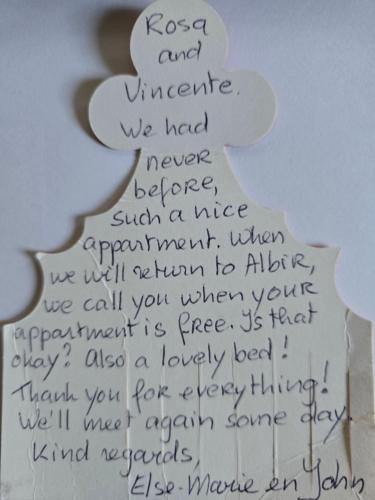 Rosa
and
Vincente.
We had
never
before,
such a nice
appartment. When
we will return to Albir,
we call you when your
appartment is free. Is that
okay? Also a lovely bed!
Thank you for everything!
We'll meet again some day.
Kind regards,
Else-Marie en John